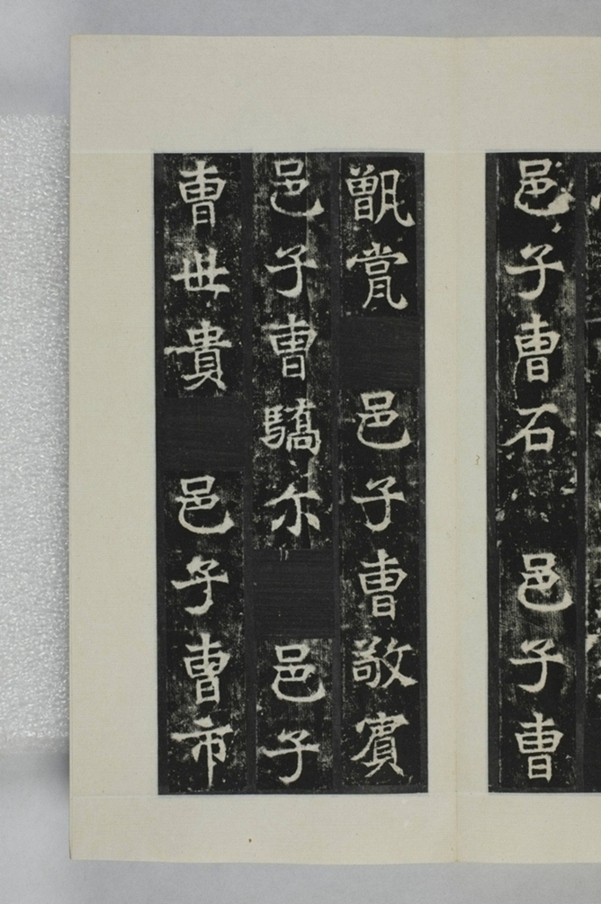 邑子曹石 邑子曹
甑甍 邑子曹敬賓
邑子曹驕尒 邑子
曹世貴 邑子曹市